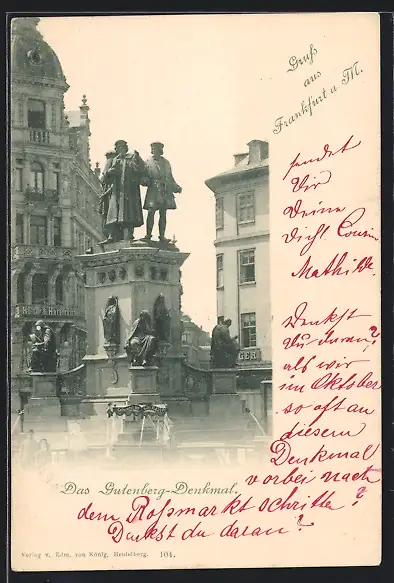 Gruß
aus
Frankfurt a M.
sendet
Dir
Deine
Dich l. Cousine
Mathilde.
Denkst
Du daran?
als wir
im Oktober
so oft an
diesem
Denkmal
vorbei nach
dem Roßmarkt schritten?
Denkst du daran?
Das Gutenberg-Denkmal.
Verlag v. Edm. von König, Heidelberg. 104.